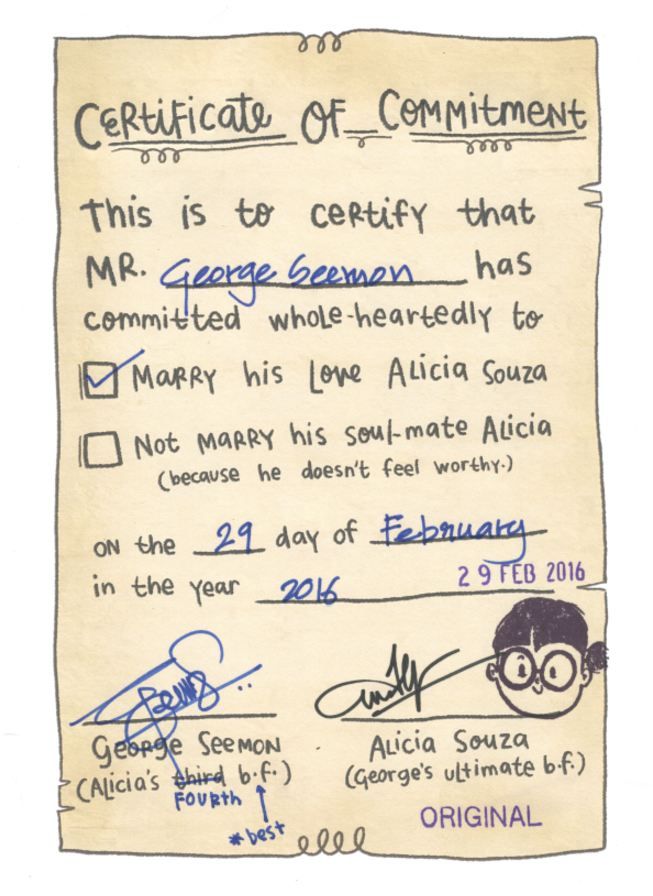 Certificate of Commitment
This is to certify that
MR. George Seemon has
committed whole-heartedly to
Marry his Love Alicia Souza
Not Marry his soul-mate Alicia
(because he doesn't feel worthy.)
on the 29 day of February
in the year 2016
29 FEB 2016
George Seemon
(Alicia's third b.f.)
Fourth
*best
Alicia Souza
(George's ultimate b.f.)
ORIGINAL